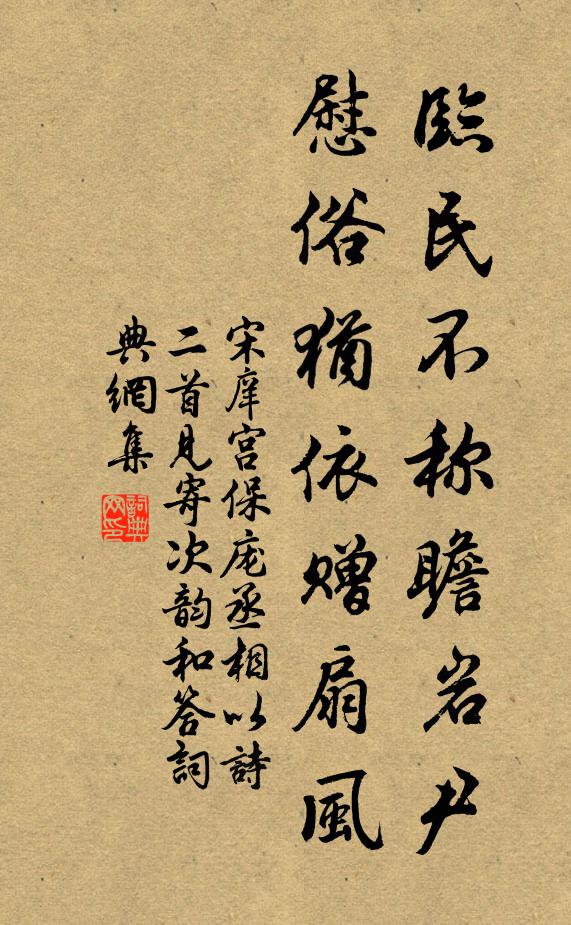 臨民不称瞻岩尹
慰俗猶依贈扇風
宋庠宫保庞丞相以詩
二首見寄次韵和答詞
典網集
詞典
网印